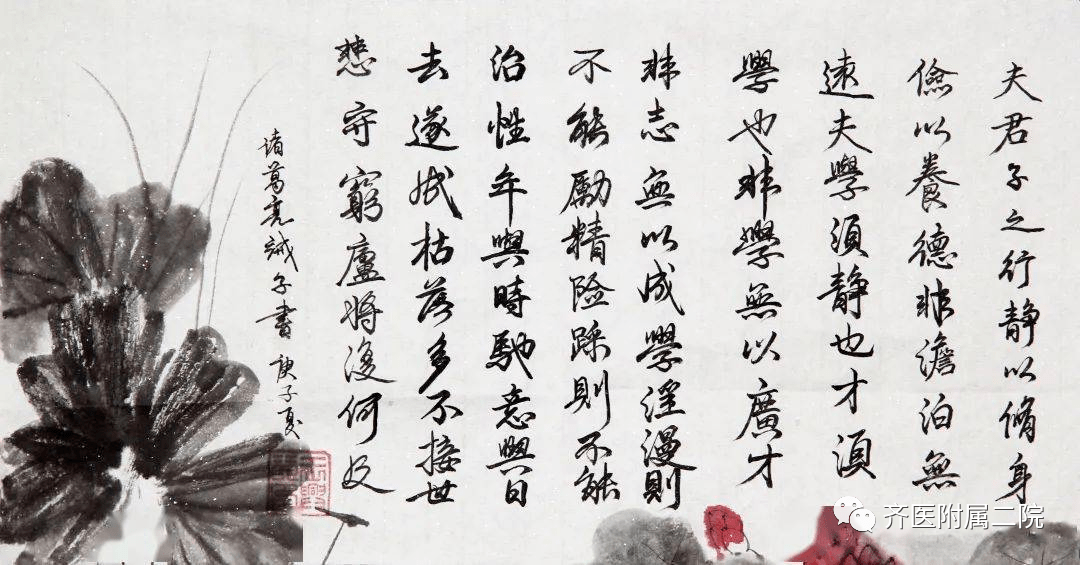 夫君子之行静以脩身
儉以養德非澹泊無
遠夫學須静也才須
學也非學無以廣才
非志無以成學淫漫則
不能勵精险躁則不能
治性年與時馳意與日
去遂成枯落多不接世
悲守窮廬將復何及
诸葛亮誡子書 庚子夏
齐医附属二院